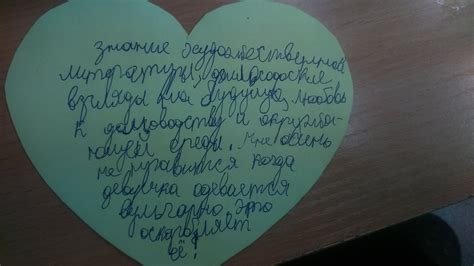 знание художественной
литературы, философские
взгляды на будущую, любовь
к домоводству и окружаю-
ющей среды. Мне очень
не нравится когда
девушка одевается
вульгарно, это
оскорбляет
её!